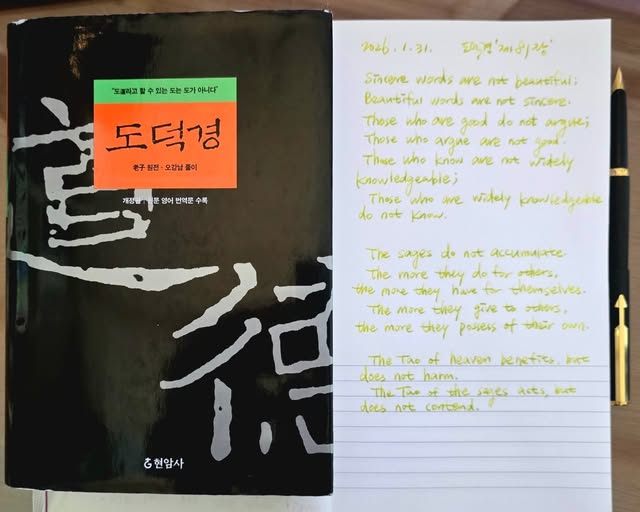 "도道라고 할 수 있는 도는 도가 아니다"
도덕경
老子 원전 · 오강남 풀이
개정판 : 원문 영어 번역문 수록
道
德
현암사
2026. 1. 31. 도덕경 '제81장'
Sincere words are not beautiful;
Beautiful words are not sincere.
Those who are good do not argue;
Those who argue are not good.
Those who know are not widely
knowledgeable;
Those who are widely knowledgeable
do not know.
The sages do not accumulate.
The more they do for others,
the more they have for themselves.
The more they give to others,
the more they possess of their own.
The Tao of heaven benefits, but
does not harm.
The Tao of the sages acts, but
does not contend.